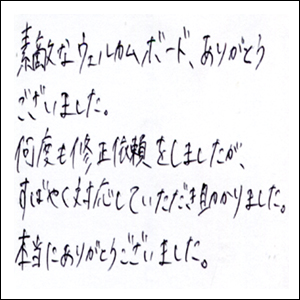 素敵なウェルカムボード、ありがとう
ございました。
何度も修正依頼をしましたが、
すばやく対応していただき助かりました。
本当にありがとうございました。